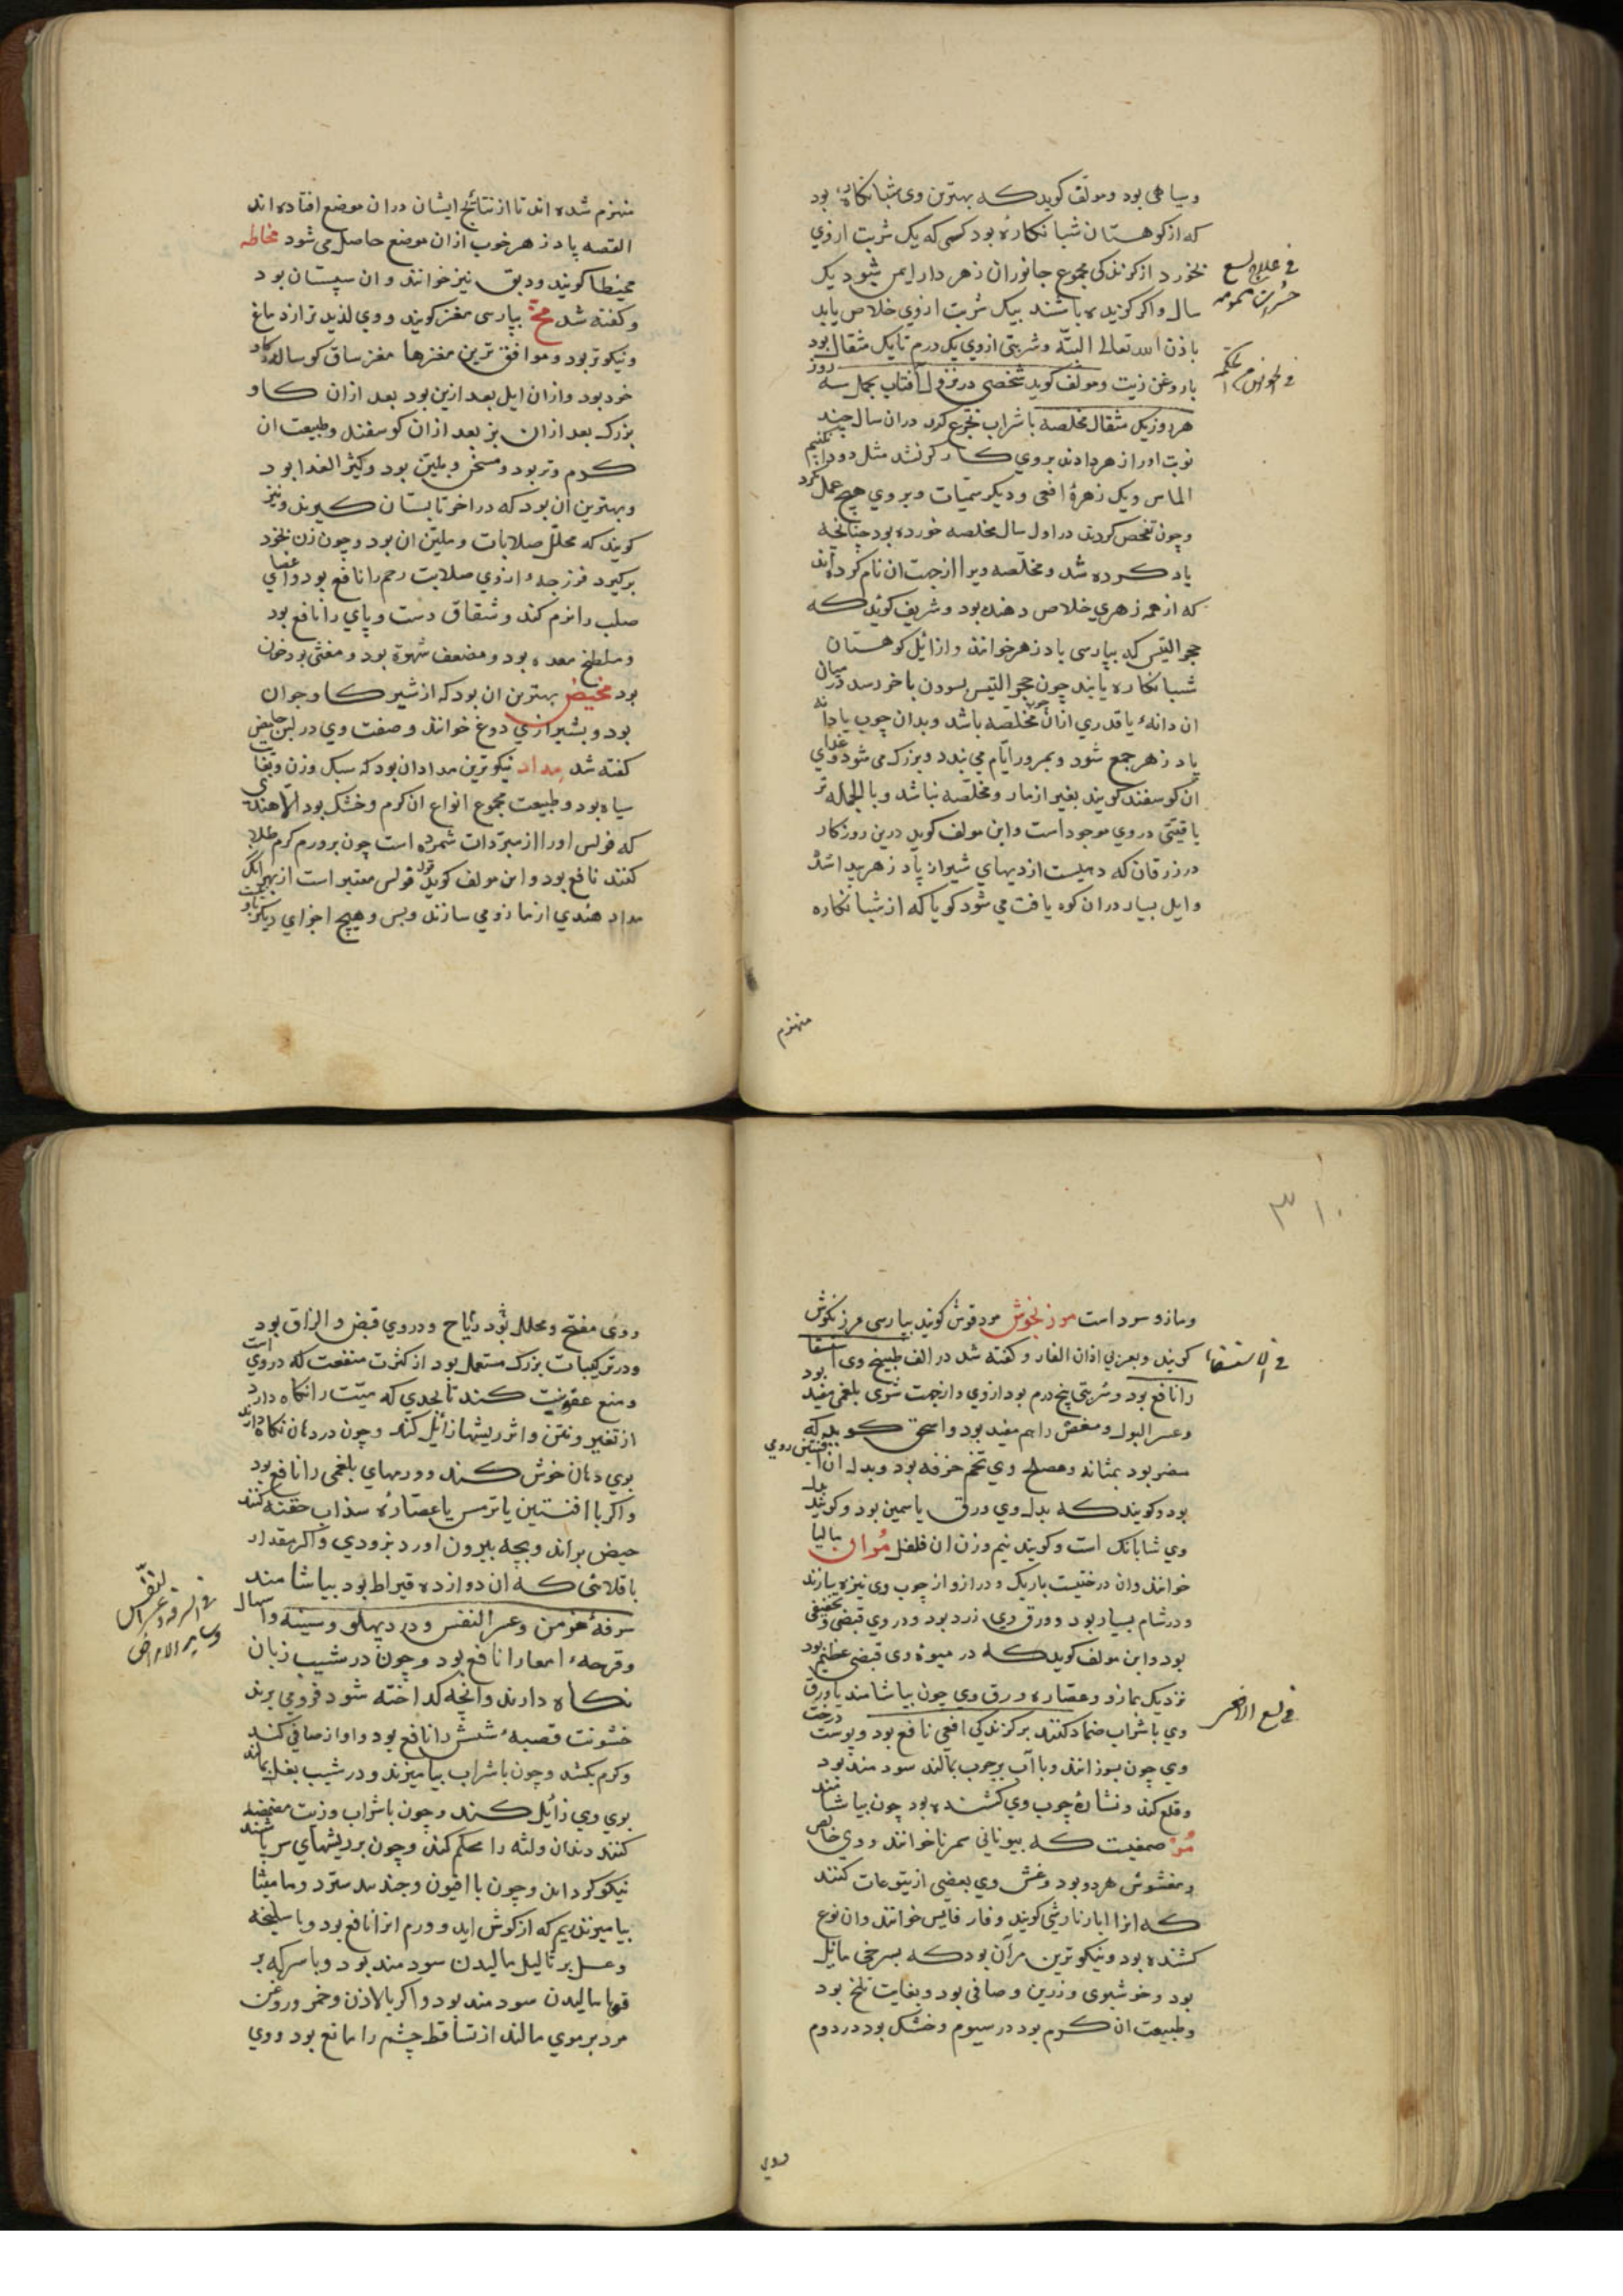 وسیاهی بود ومولف کوید که بهترین وی شبانکاره بود
که از کوهستان شبانکاره بود کسی که یک شربت از وی
بخورد از کزندکی مجموع جانوران زهردار ایمن شود یک
سال واکر کزیده باشند بیک شربت از وی خلاص یابد
باذن الله تعالی البته وشربتی از وی یک درم تا یک مثقال بود
باروغن زیت ومولف کوید شخصی در نزول آفتاب بحمل سه روز
هر روز یک مثقال مخلصه با شراب تجرع کرد در ان سال چند
نوبت او را زهر دادند بر وی کارکر نشد مثل دو دانک نیم
الماس ویک زهرۀ افعی ودیکر سمیات وبر وی هیچ عمل نکرد
وچون تفحص کردند در اول سال مخلصه خورده بود چنانچه
یاد کرده شد ومخلصه ویرا از جهت ان نام کرده اند
که از همه زهری خلاص دهنده بود وشریف کوید که
حجر التیس که بپارسی پادزهر خوانند واز ائل کوهستان
شبانکاره یابند چون حجر التیس بسودن باخر رسد در میان
ان دانهٔ یا قدری از ان چوب مخلصه باشد وبدان چوب یا دانه
پادزهر جمع شود وبمرور ایام می بندد وبزرک می شود وغذای
ان کوسفند کویند بغیر از مار ومخلصه نباشد وبالجمله تر
یاقیتی در وی موجود است واین مولف کوید درین روزکار
در زرقان که دهیست از دیهای شیراز پادزهر پیدا شد
وایل بسیار در ان کوه یافت می شود کویا که از شبانکاره
منهزم
فی علاج لسع
حشرات مسمومه
منهزم شده اند تا از نتائج ایشان در ان موضع افتاده اند
القصه پادزهر خوب از ان موضع حاصل می شود مخاطه
مخیطا کویند ودبق نیز خوانند وان سپستان بود
وکفته شد مخ بپارسی مغز کویند ووی لذیذتر از دماغ
ونیکوتر بود وموافق ترین مغزها مغز ساق کوساله کاو
خرد بود واز ان ایل بعد ازین بود بعد از ان کاو
بزرک بعد از ان بز بعد از ان کوسفند وطبیعت ان
کرم وتر بود ومسخن وملین بود وکثیر الغذا بود
وبهترین ان بود که در اخر تابستان کیرند ونیز
کویند که محلل صلابات وملین ان بود وچون زن بخود
برکیرد فرزجهٔ از وی صلابت رحم را نافع بود واعضای
صلب را نرم کند وشقاق دست وپای را نافع بود
وملطخ معده بود ومضعف شهوة بود ومغثی بود خون
بود مخیض بهترین ان بود که از شیر کاو جوان
بود وبشیرازی دوغ خوانند وصفت وی در لبن حامض
کفته شد مداد نیکوترین مدادان بود که سبک وزن وبغایت
سیاه بود وطبیعت مجموع انواع ان کرم وخشک بود الا هندی
که فولس او را از مبردات شمرده است چون بر ورم کرم طلا
کنند نافع بود واین مولف کوید قول فولس معتبر است از بهر انک
مداد هندی از مازو می سازند وبس وهیچ اجزای دیکر نیست
۳۱۰
ومازو سرد است مرزنجوش مردقوش کویند بپارسی مرزنکوش
کویند وبعربی اذان الفار وکفته شد در الف طبیخ وی استسقا
را نافع بود وشربتی پنج درم بود از وی واز جهت شری بلغمی مفید بود
وعسر البول ومغص را هم مفید بود واسحق کوید که
مضر بود بمثانه ومصلح وی تخم خرفه بود وبدل ان افسنتین رومی
بود وکویند که بدل وی ورق یاسمین بود وکویند بدل
وی شابانک است وکویند نیم وزن ان فلفل مران مالیا
خوانند وان درختیست باریک ودراز واز چوب وی نیزه سازند
ودر شام بسیار بود وورق وی زرد بود ودر وی قبضی وتجفیفی
بود واین مولف کوید که در میوۀ وی قبضی عظیم بود
نزدیک بمازو وعصاره ورق وی چون بیاشامند یا ورق
وی با شراب ضماد کنند بر کزندکی افعی نافع بود وپوست درخت
وی چون بسوزانند وبا آب بر جرب بمالند سودمند بود
وقلع کند ونشارۀ چوب وی کشنده بود چون بیاشامند
مر صمغیست که بیونانی سمرنا خوانند ووی خالص
ومغشوش هر دو بود وغش وی بعضی از یتوعات کنند
که انرا ابارنارشی کویند وفارفایس خوانند وان نوع
کشنده بود ونیکوترین مر آن بود که بسرخی مائل
بود وخوشبوی وزرین وصافی بود وبغایت تلخ بود
وطبیعت ان کرم بود در سیوم وخشک بود در دوم
ووی
فی الاستسقاء
فی لسع الافعی
ووی مفتح ومحلل بود ریاح ودر وی قبض والزاق بود
ودر ترکیبات بزرک مستعمل بود از کثرت منفعت که در وی است
ومنع عفونت کند تا بحدی که میت را نکاه دارد
از تغیر ونتن واثر ریشها زائل کند وچون در دهان نکاه دارند
بوی دهان خوش کند وورمهای بلغمی را نافع بود
واکر با افسنتین یا ترمس یا عصارۀ سذاب حقنه کنند
حیض براند وبچه بیرون اورد بزودی واکر مقدار
باقلائی که ان دوازده قیراط بود بیاشامند
سرفۀ مزمن وعسر النفس ودرد پهلو وسینه واسهال
وقرحهٔ امعا را نافع بود وچون در شیب زبان
نکاه دارند وانچه کداخته شود فرو می برند
خشونت قصبهٔ شش را نافع بود واواز صافی کند
وکرم بکشد وچون با شراب بیامیزند ودر شیب بغل بمالند
بوی وی زائل کند وچون با شراب وزیت مضمضه
کنند دندان ولثه را محکم کند وچون بر ریشهای سر پاشند
نیکو کرداند وچون با افیون وجندبیدستر ومامیثا
بیامیزند ریم که از کوش اید وورم انرا نافع بود وبا سلیخه
وعسل بر ثالیل مالیدن سودمند بود وبا سرکه بر
قوبا مالیدن سودمند بود واکر با لاذن وخمر وروغن
مرد بر موی مالند از تساقط چشم را مانع بود ووی
فی السرفه وعسر النفس
وسایر الامراض